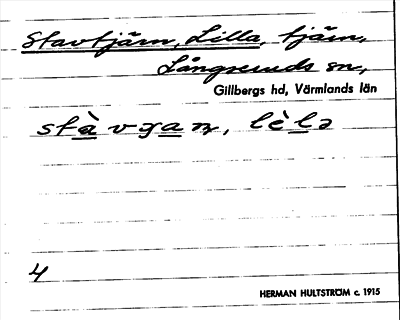 Stavtjärn, Lilla, tjärn,
Långseruds sn,
Gillbergs hd, Värmlands län
stàvgan, lèlə
4
HERMAN HULTSTRÖM c. 1915